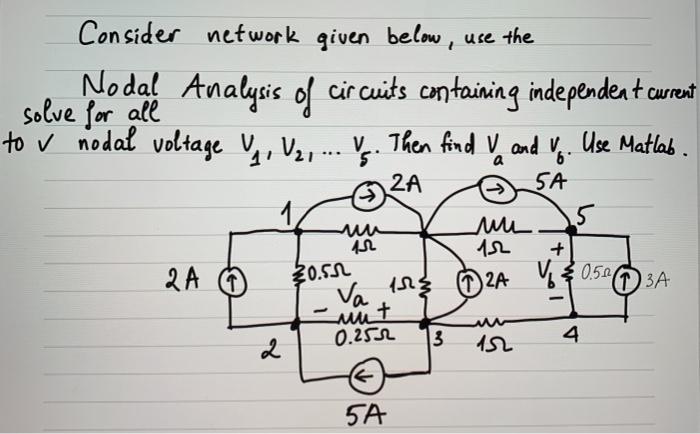 Consider network given below, use the
Nodal Analysis of circuits containing independent current
solve for all
to ✓ nodal voltage V1, V2, ... V5. Then find Va and Vb. Use Matlab.
2A
5A
1
5
1Ω
1Ω
+
2A
0.5Ω
1Ω
2A
Vb
0.5Ω
3A
Va
- +
-
0.25Ω
3
1Ω
4
2
5A